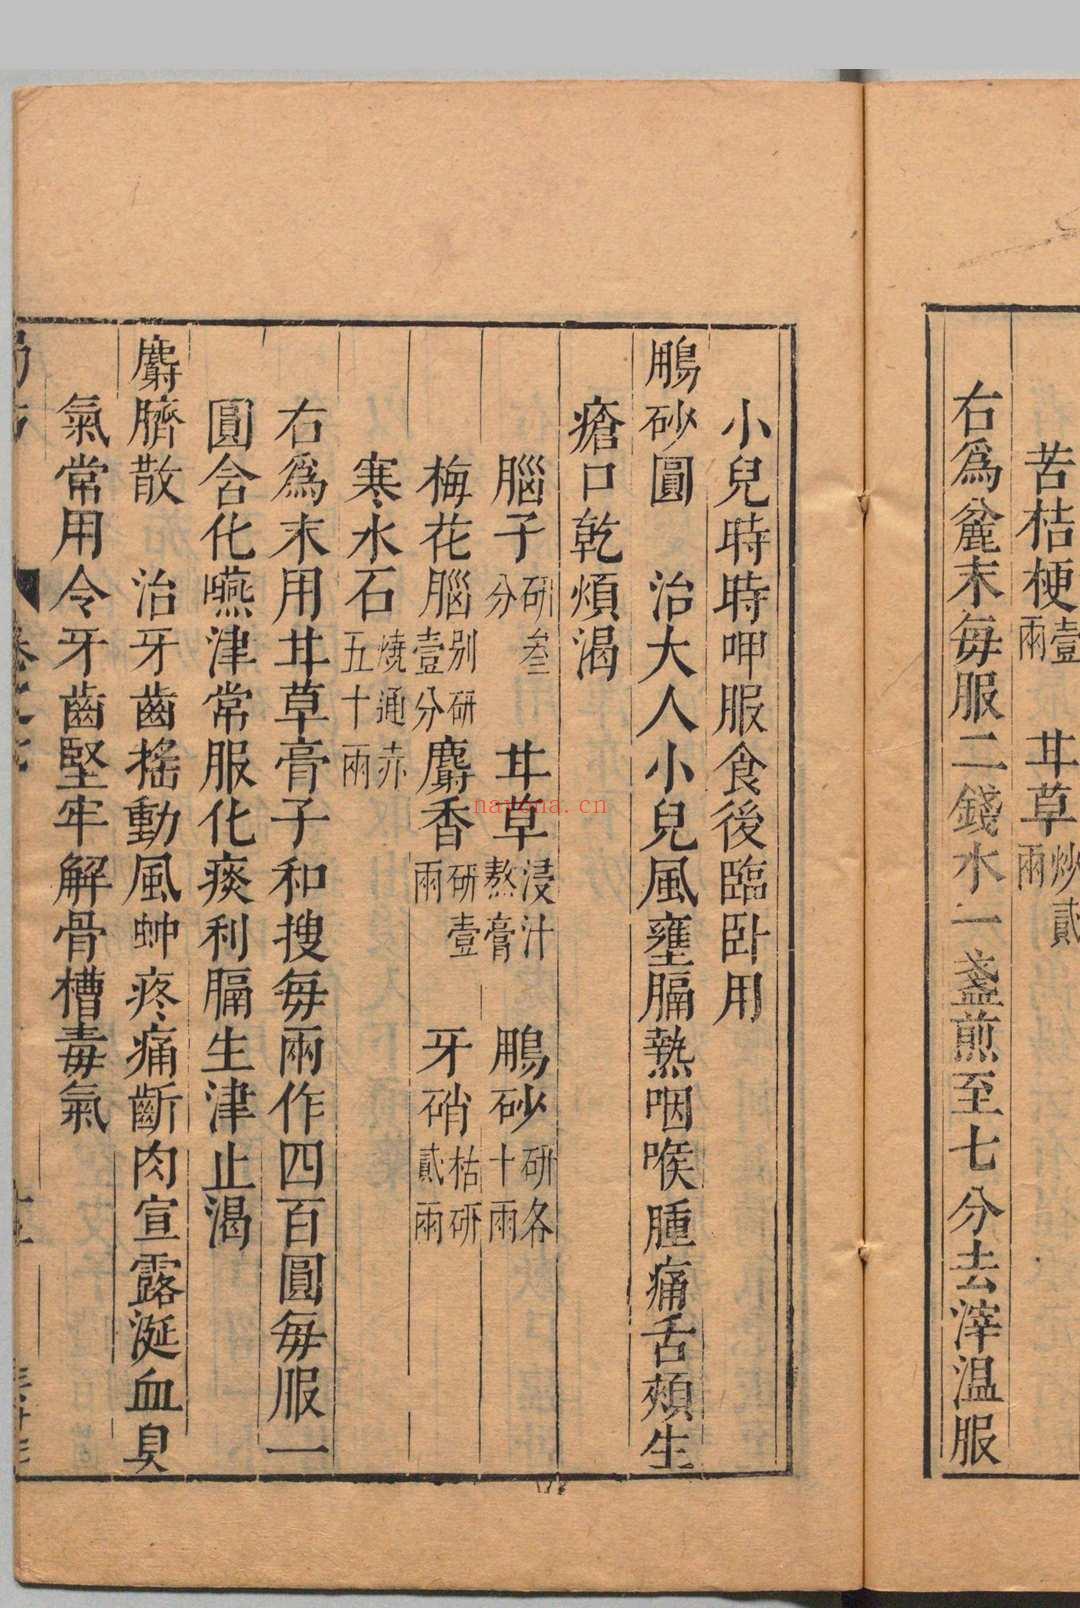 苦桔梗壹兩 甘草炒貳兩
右爲麄末每服二錢水一盞煎至七分去滓溫服
小兒時時呷服食後臨卧用
鵬砂圓 治大人小兒風壅膈熱咽喉腫痛舌頰生
瘡口乾煩渴
腦子研叁分 甘草浸汁熬膏 鵬砂研各十兩
梅花腦別研壹分 麝香研壹兩 牙硝枯研貳兩
寒水石燒通赤五十兩
右爲末用甘草膏子和搜每兩作四百圓每服一
圓含化嚥津常服化痰利膈生津止渴
麝臍散 治牙齒搖動風蚛疼痛齗肉宣露涎血臭
氣常用令牙齒堅牢解骨槽毒氣
nayona.cn